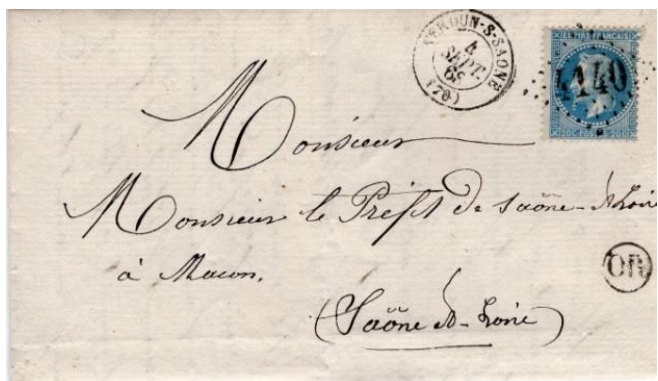 VERDUN-S-SAONE
4
SEPT.
68
(70)
EMPIRE FRANÇAIS
4140
20 C POSTES 20 C
Monsieur
Monsieur le Préfet de Saône-et-Loire
à Macon.
OR
(Saône et-Loire)